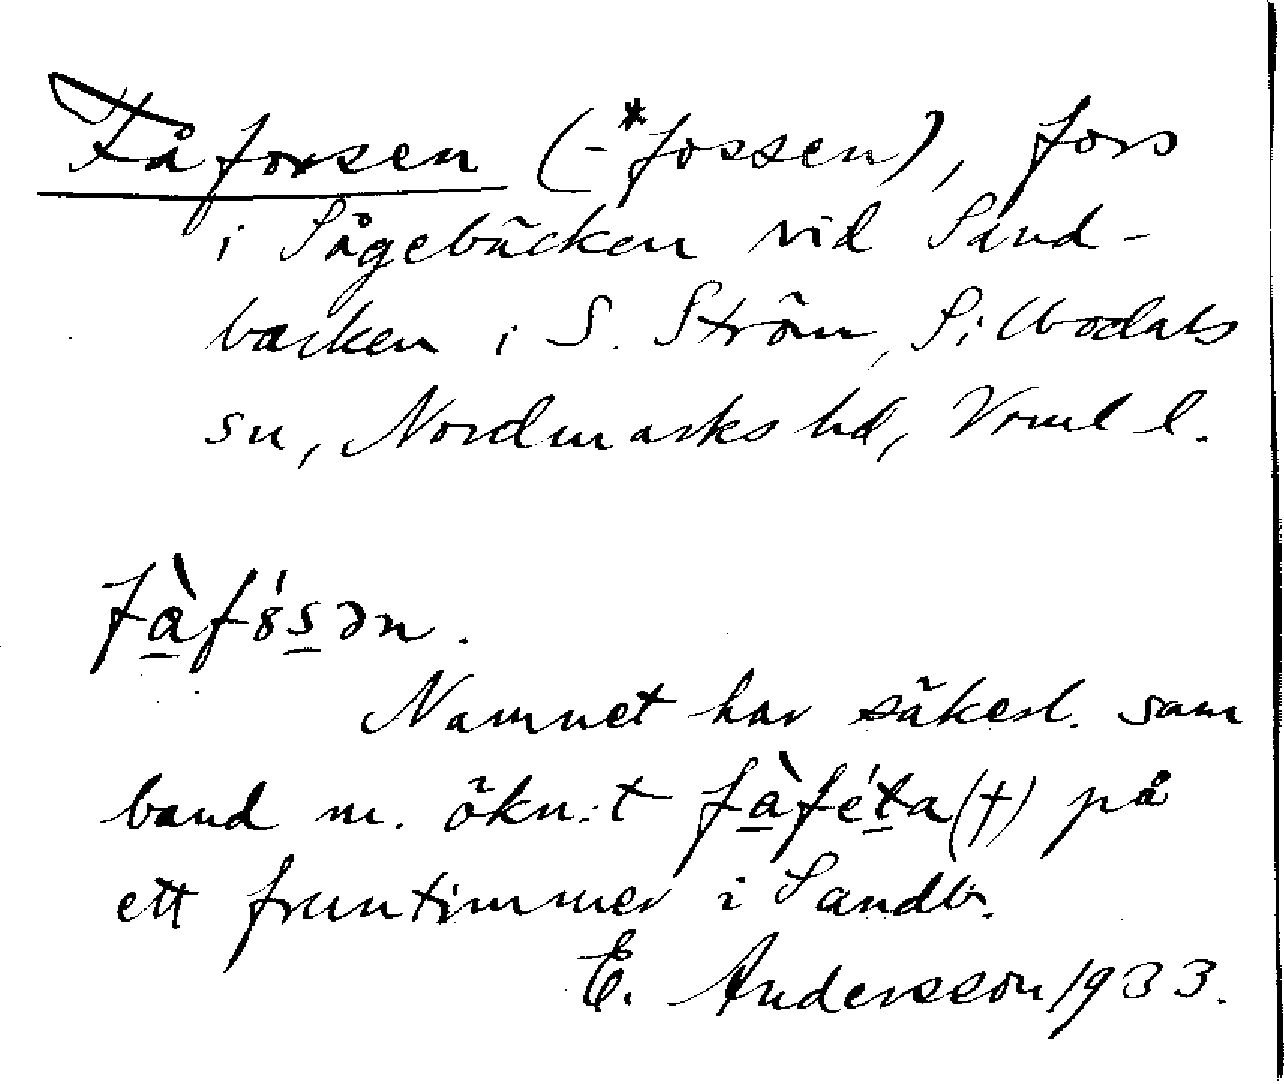 Fåforsen (-*fossen), fors
i Sågebäcken vid Sand-
backen i S. Ström, Silbodals
sn, Nordmarks hd, Vrml l.
fàfósən.
Namnet har säkerl. sam
band m. ökn:t fàféta (†) på
ett fruntimmer i Sandb.
E. Andersson 1933.